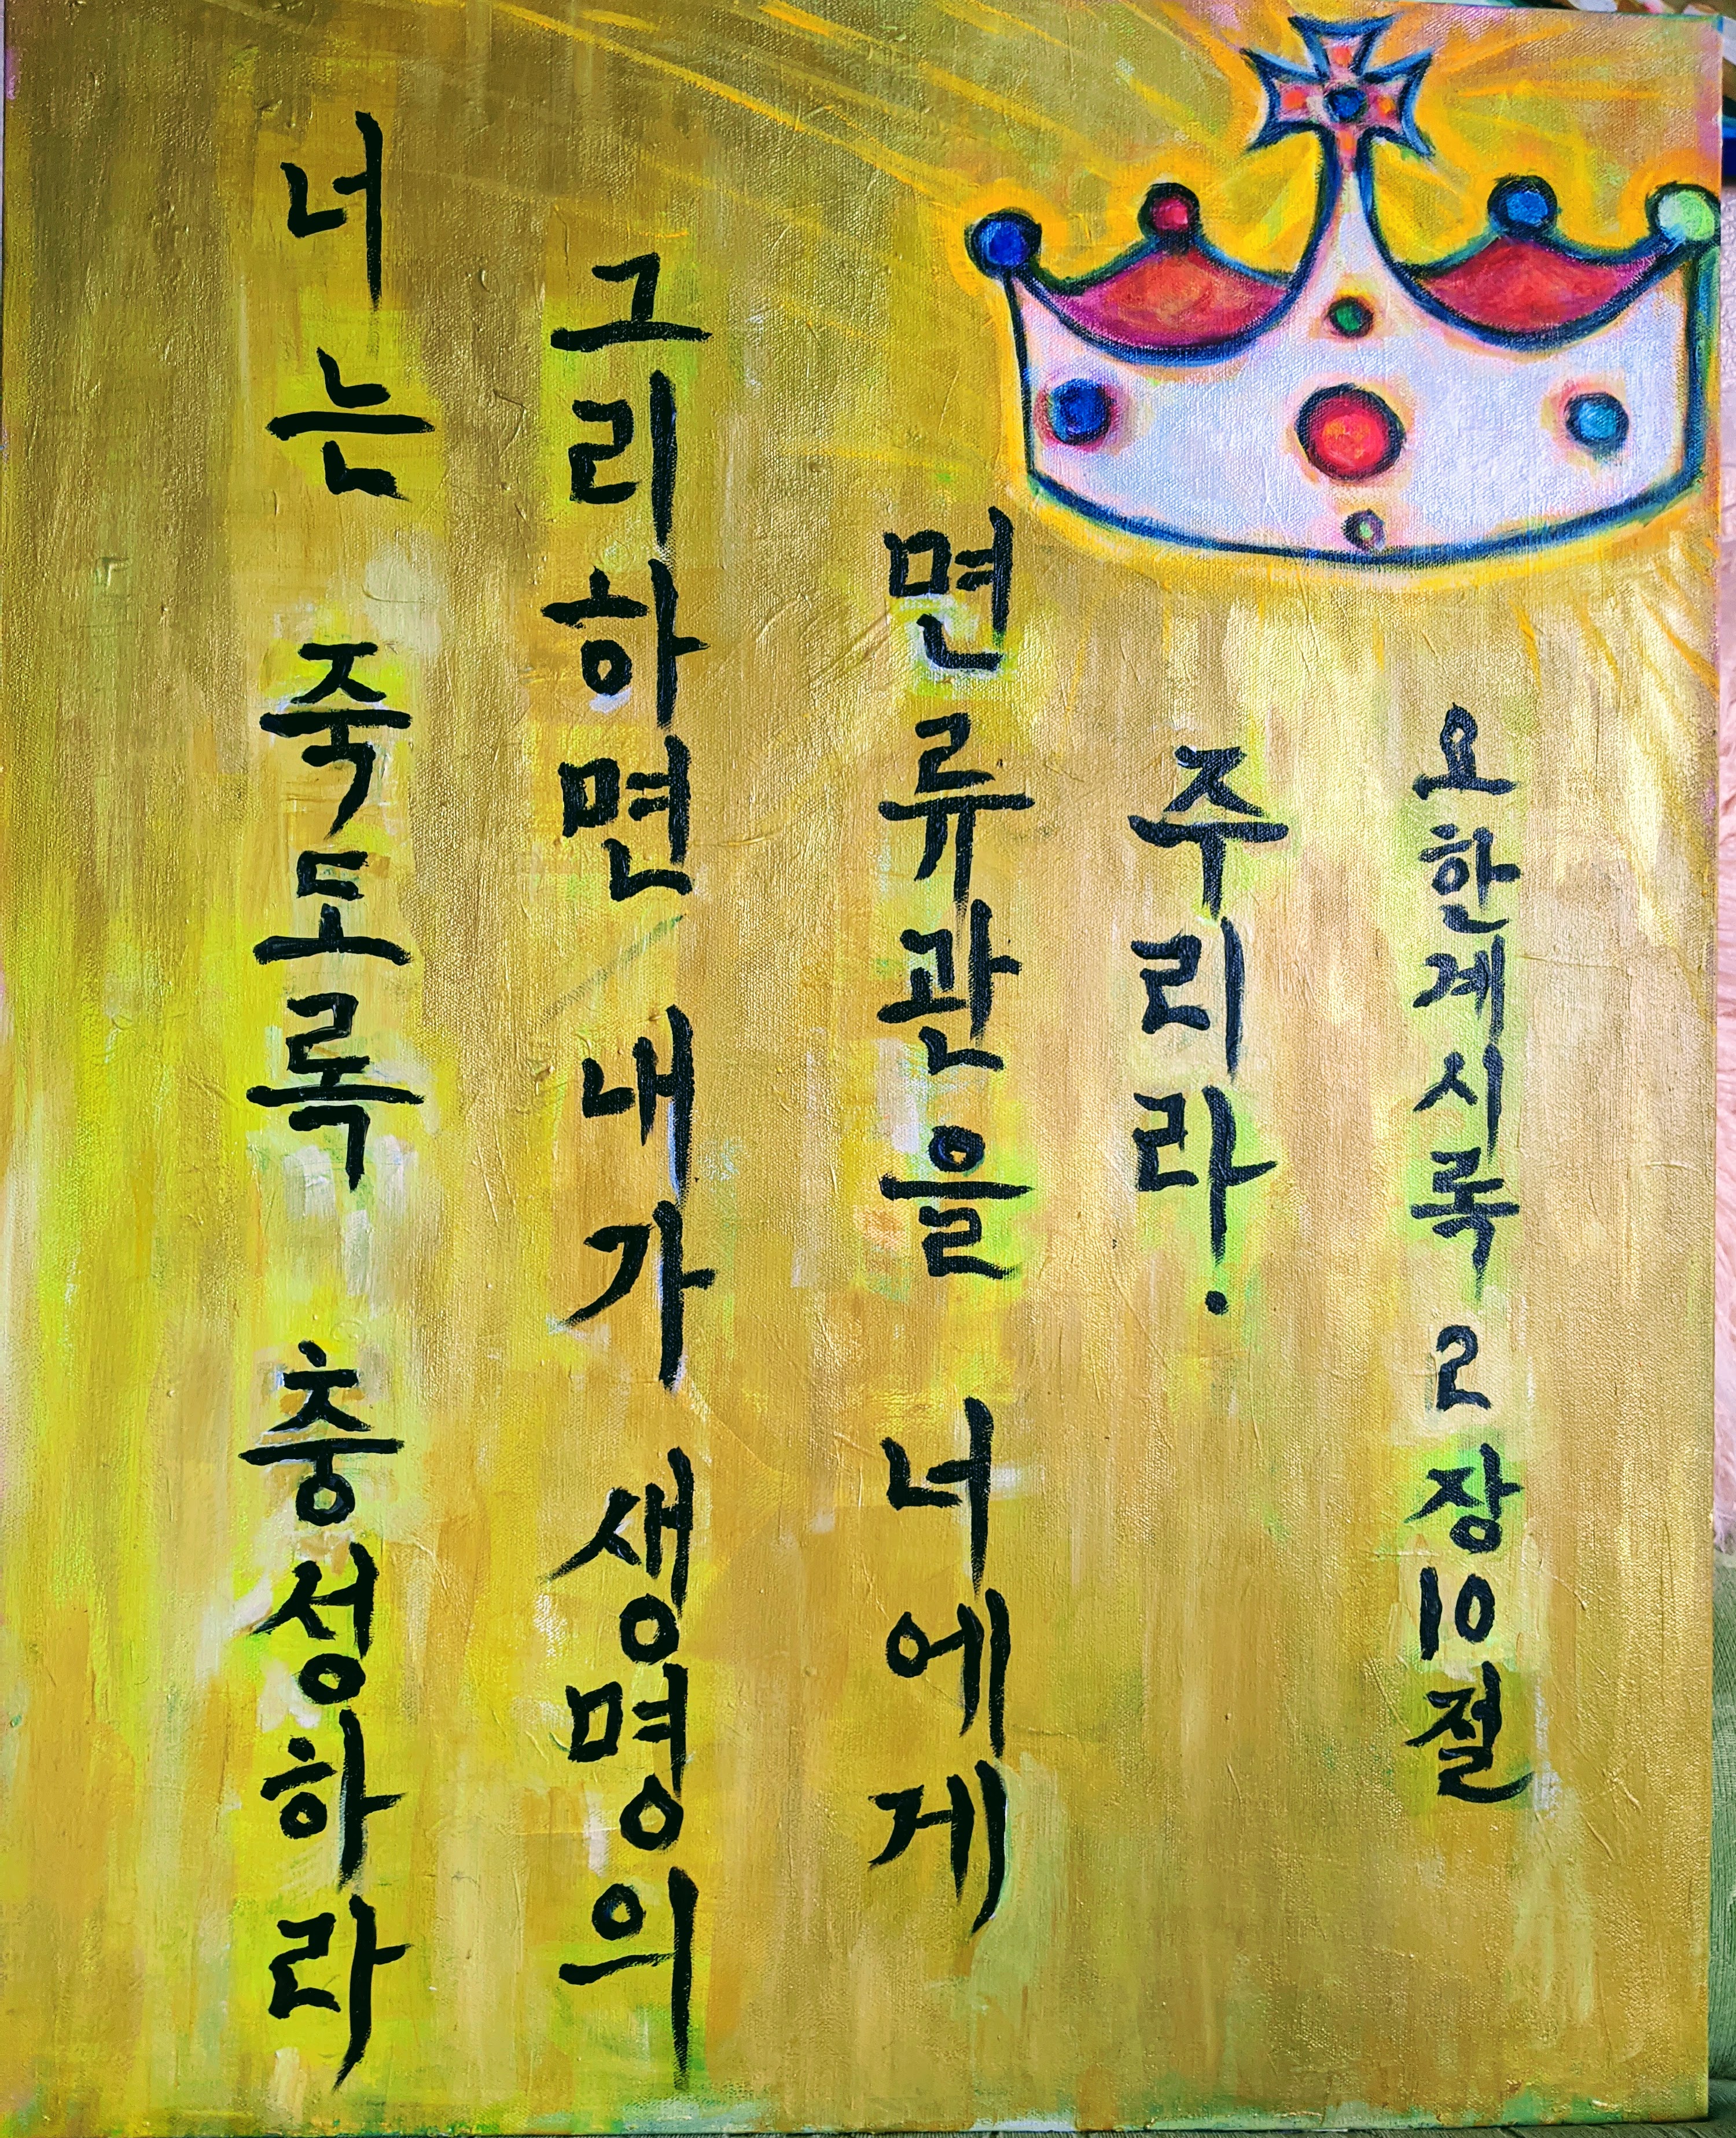 너는 죽도록 충성하라
그리하면 내가 생명의
면류관을 너에게
주리라.
요한계시록 2장10절